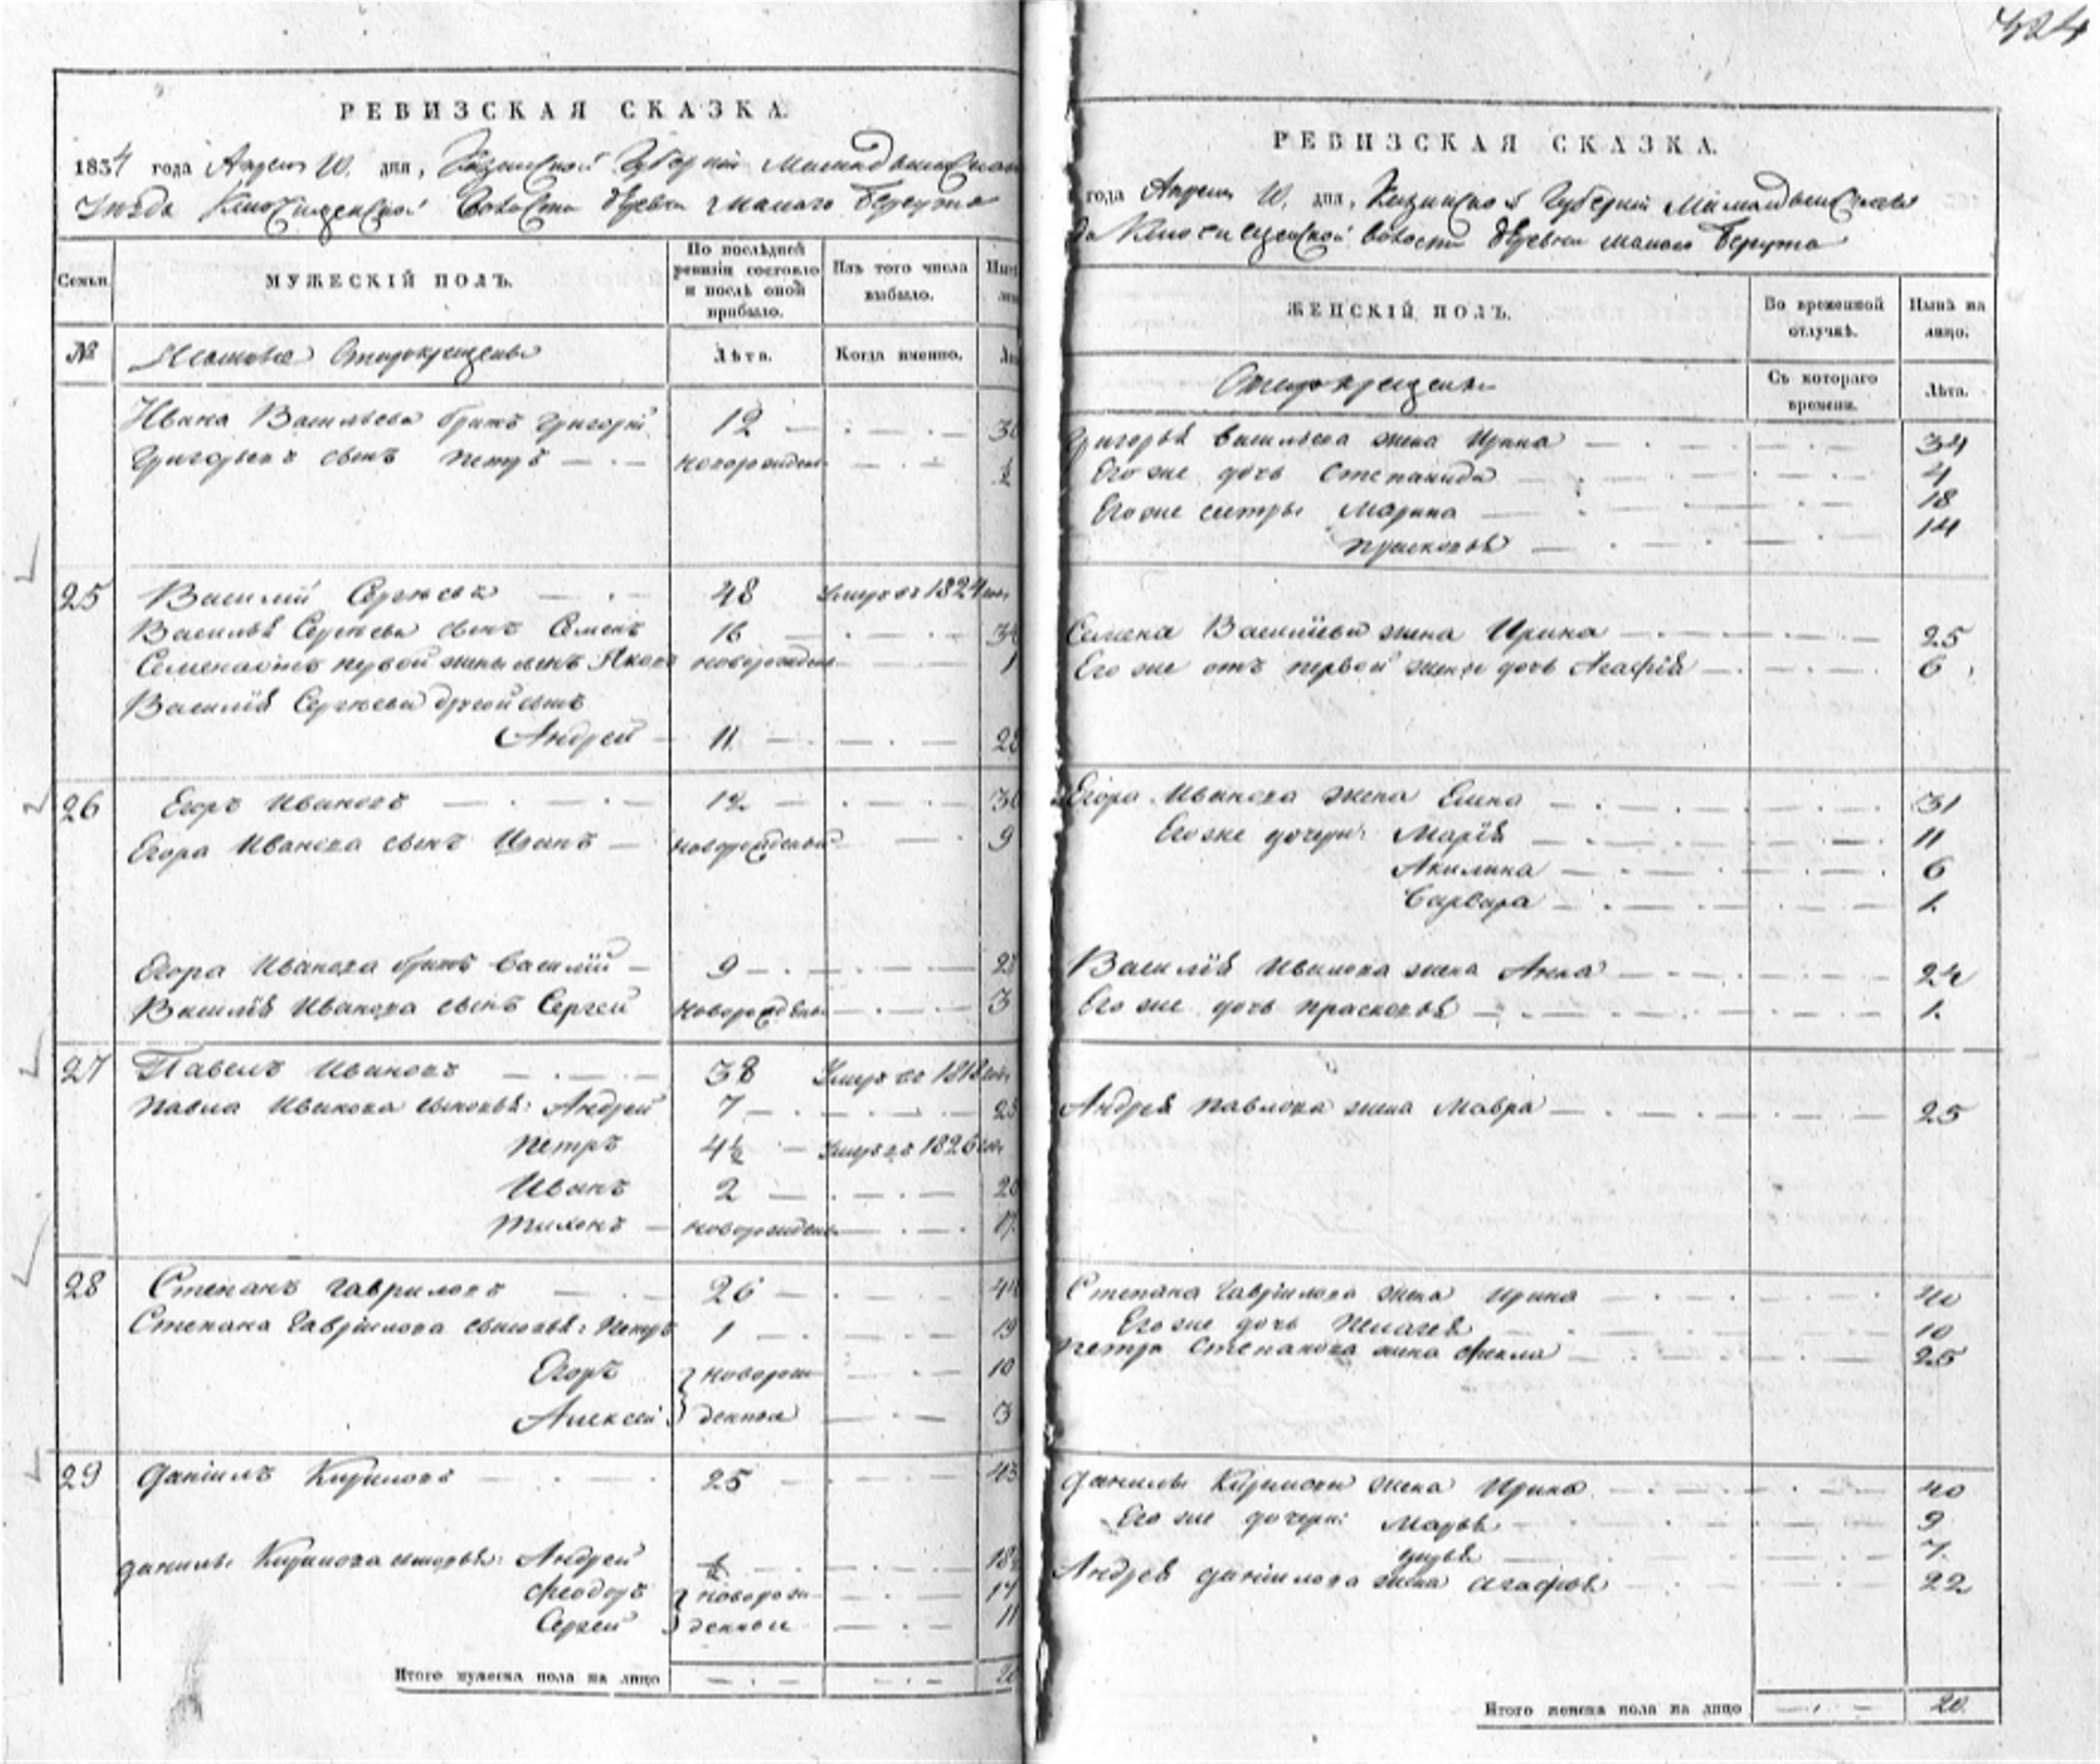 424
РЕВИЗСКАЯ СКАЗКА.
1834 года Апреля 10. дня, Казанской Губерніи Мамадышскаго
Уезда Ключищенской Волости деревни Малаго
Семьи.
МУЖЕСКІЙ ПОЛЪ.
По послѣдней ревизіи состояло и послѣ оной прибыло.
Изъ того числа выбыло.
№
Старокрещены
Лѣта.
Когда именно.
Ивана Васильева братъ Григорій 12
Григорьевъ сынъ Петръ новорожден
25 Василій Сергѣевъ 48 Умеръ въ 1824
Василья Сергѣева сынъ Семенъ 16
Семена отъ первой жены сынъ Яковъ новорожден 1
Василія Сергѣева другой сынъ
Андрей 11
26 Егоръ Ивановъ 12
Егора Иванова сынъ Иванъ новорожденный 9
Егора Иванова братъ Василій 9
Василія Иванова сынъ Сергей новорожден 3
27 Павелъ Ивановъ 38 Умеръ въ 1818
Павла Иванова сыновья: Андрей 7
Петръ 4½ Умеръ въ 1826
Иванъ 2
Тихонъ новорожден 17
28 Степанъ Гавриловъ 26
Степана Гаврилова сыновья: Петръ 1 19
Егоръ новорож 10
Алексей денные 3
29 Даніилъ Кириловъ 25 43
Данилы Кирилова сыновья: Андрей ½ 18½
Феодоръ новорож 17
Сергей денные 11
Итого мужеска пола на лицо
РЕВИЗСКАЯ СКАЗКА.
года Апреля 10. дня, Казанской Губерніи Мамадышскаго
да Ключищенской Волости деревни Малаго
ЖЕНСКІЙ ПОЛЪ.
Во временной отлучкѣ.
Нынѣ на лицо.
Старокрещены
Съ котораго времени.
Лѣта.
Григорья Васильева жена Ирина 34
Его же дочь Степанида 4
Его же сестры Марина 18
Прасковья 14
Семена Васильева жена Ирина 25
Его же отъ первой жены дочь Агафія 6
Егора Иванова жена Елена 31
Его же дочери: Марія 11
Акилина 6
Варвара 1.
Василія Иванова жена Анна 24
Его же дочь Прасковья 1.
Андрея Павлова жена Мавра 25
Степана Гаврилова жена Ирина 40
Его же дочь Пелагея 10
Петра Степанова жена Фекла 25
Данилы Кирилова жена Ирина 40
Его же дочери: Марья 9
Дарья 7.
Андрея Даниилова жена Агафья 22
Итого женска пола на лицо 20.